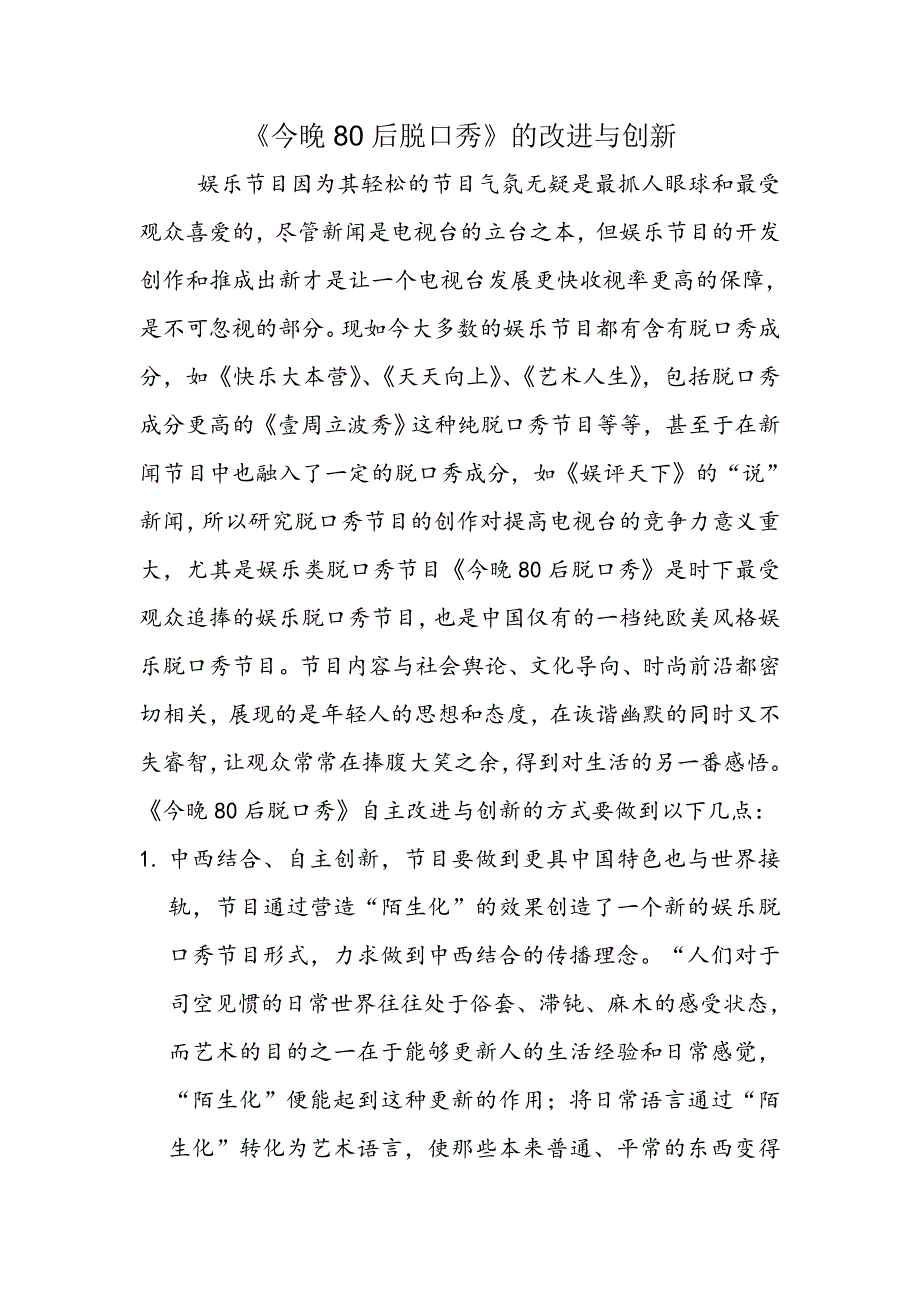 《今晚 80 后脱口秀》的改进与创新
娱乐节目因为其轻松的节目气氛无疑是最抓人眼球和最受
观众喜爱的，尽管新闻是电视台的立台之本，但娱乐节目的开发
创作和推成出新才是让一个电视台发展更快收视率更高的保障，
是不可忽视的部分。现如今大多数的娱乐节目都有含有脱口秀成
分，如《快乐大本营》、《天天向上》、《艺术人生》，包括脱口秀
成分更高的《壹周立波秀》这种纯脱口秀节目等等，甚至于在新
闻节目中也融入了一定的脱口秀成分，如《娱评天下》的“说”
新闻，所以研究脱口秀节目的创作对提高电视台的竞争力意义重
大，尤其是娱乐类脱口秀节目《今晚 80 后脱口秀》是时下最受
观众追捧的娱乐脱口秀节目，也是中国仅有的一档纯欧美风格娱
乐脱口秀节目。节目内容与社会舆论、文化导向、时尚前沿都密
切相关，展现的是年轻人的思想和态度，在诙谐幽默的同时又不
失睿智，让观众常常在捧腹大笑之余，得到对生活的另一番感悟。
《今晚 80 后脱口秀》自主改进与创新的方式要做到以下几点：
1. 中西结合、自主创新，节目要做到更具中国特色也与世界接
轨，节目通过营造“陌生化”的效果创造了一个新的娱乐脱
口秀节目形式，力求做到中西结合的传播理念。“人们对于
司空见惯的日常世界往往处于俗套、滞钝、麻木的感受状态，
而艺术的目的之一在于能够更新人的生活经验和日常感觉，
“陌生化”便能起到这种更新的作用；将日常语言通过“陌
生化”转化为艺术语言，使那些本来普通、平常的东西变得